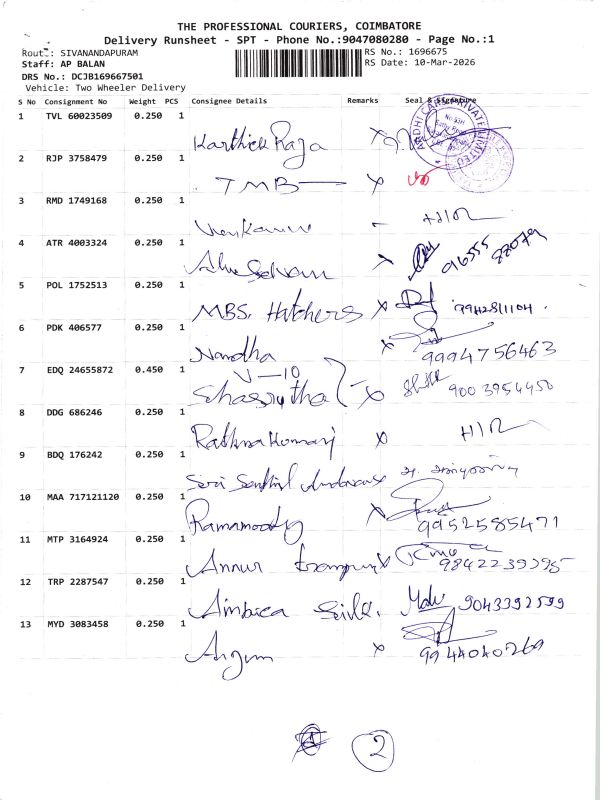 THE PROFESSIONAL COURIERS, COIMBATORE
Delivery Runsheet - SPT - Phone No.:9047080280 - Page No.:1
Route: SIVANANDAPURAM
RS No.: 1696675
Staff: AP BALAN
RS Date: 10-Mar-2026
DRS No.: DCJB169667501
Vehicle: Two Wheeler Delivery
S No Consignment No Weight PCS Consignee Details Remarks Seal & Signature
1 TVL 60023509 0.250 1
Karthick Raja x
2 RJP 3758479 0.250 1
TMB x
3 RMD 1749168 0.250 1
H/R
4 ATR 4003324 0.250 1
x 96555 88079
5 POL 1752513 0.250 1
MBS. Hatchers x 9942811104
6 PDK 406577 0.250 1
Nandha x 9994756463
7 EDQ 24655872 0.450 1
V-10
x 9003954450
8 DDG 686246 0.250 1
Rathna Kumar x H/R
9 BDQ 176242 0.250 1
Sri Senthil
10 MAA 717121120 0.250 1
Ramamoorthy x 9952585471
11 MTP 3164924 0.250 1
Annur x
12 TRP 2287547 0.250 1
Ambica Silk. 9043392599
13 MYD 3083458 0.250 1
x 9944040269
2